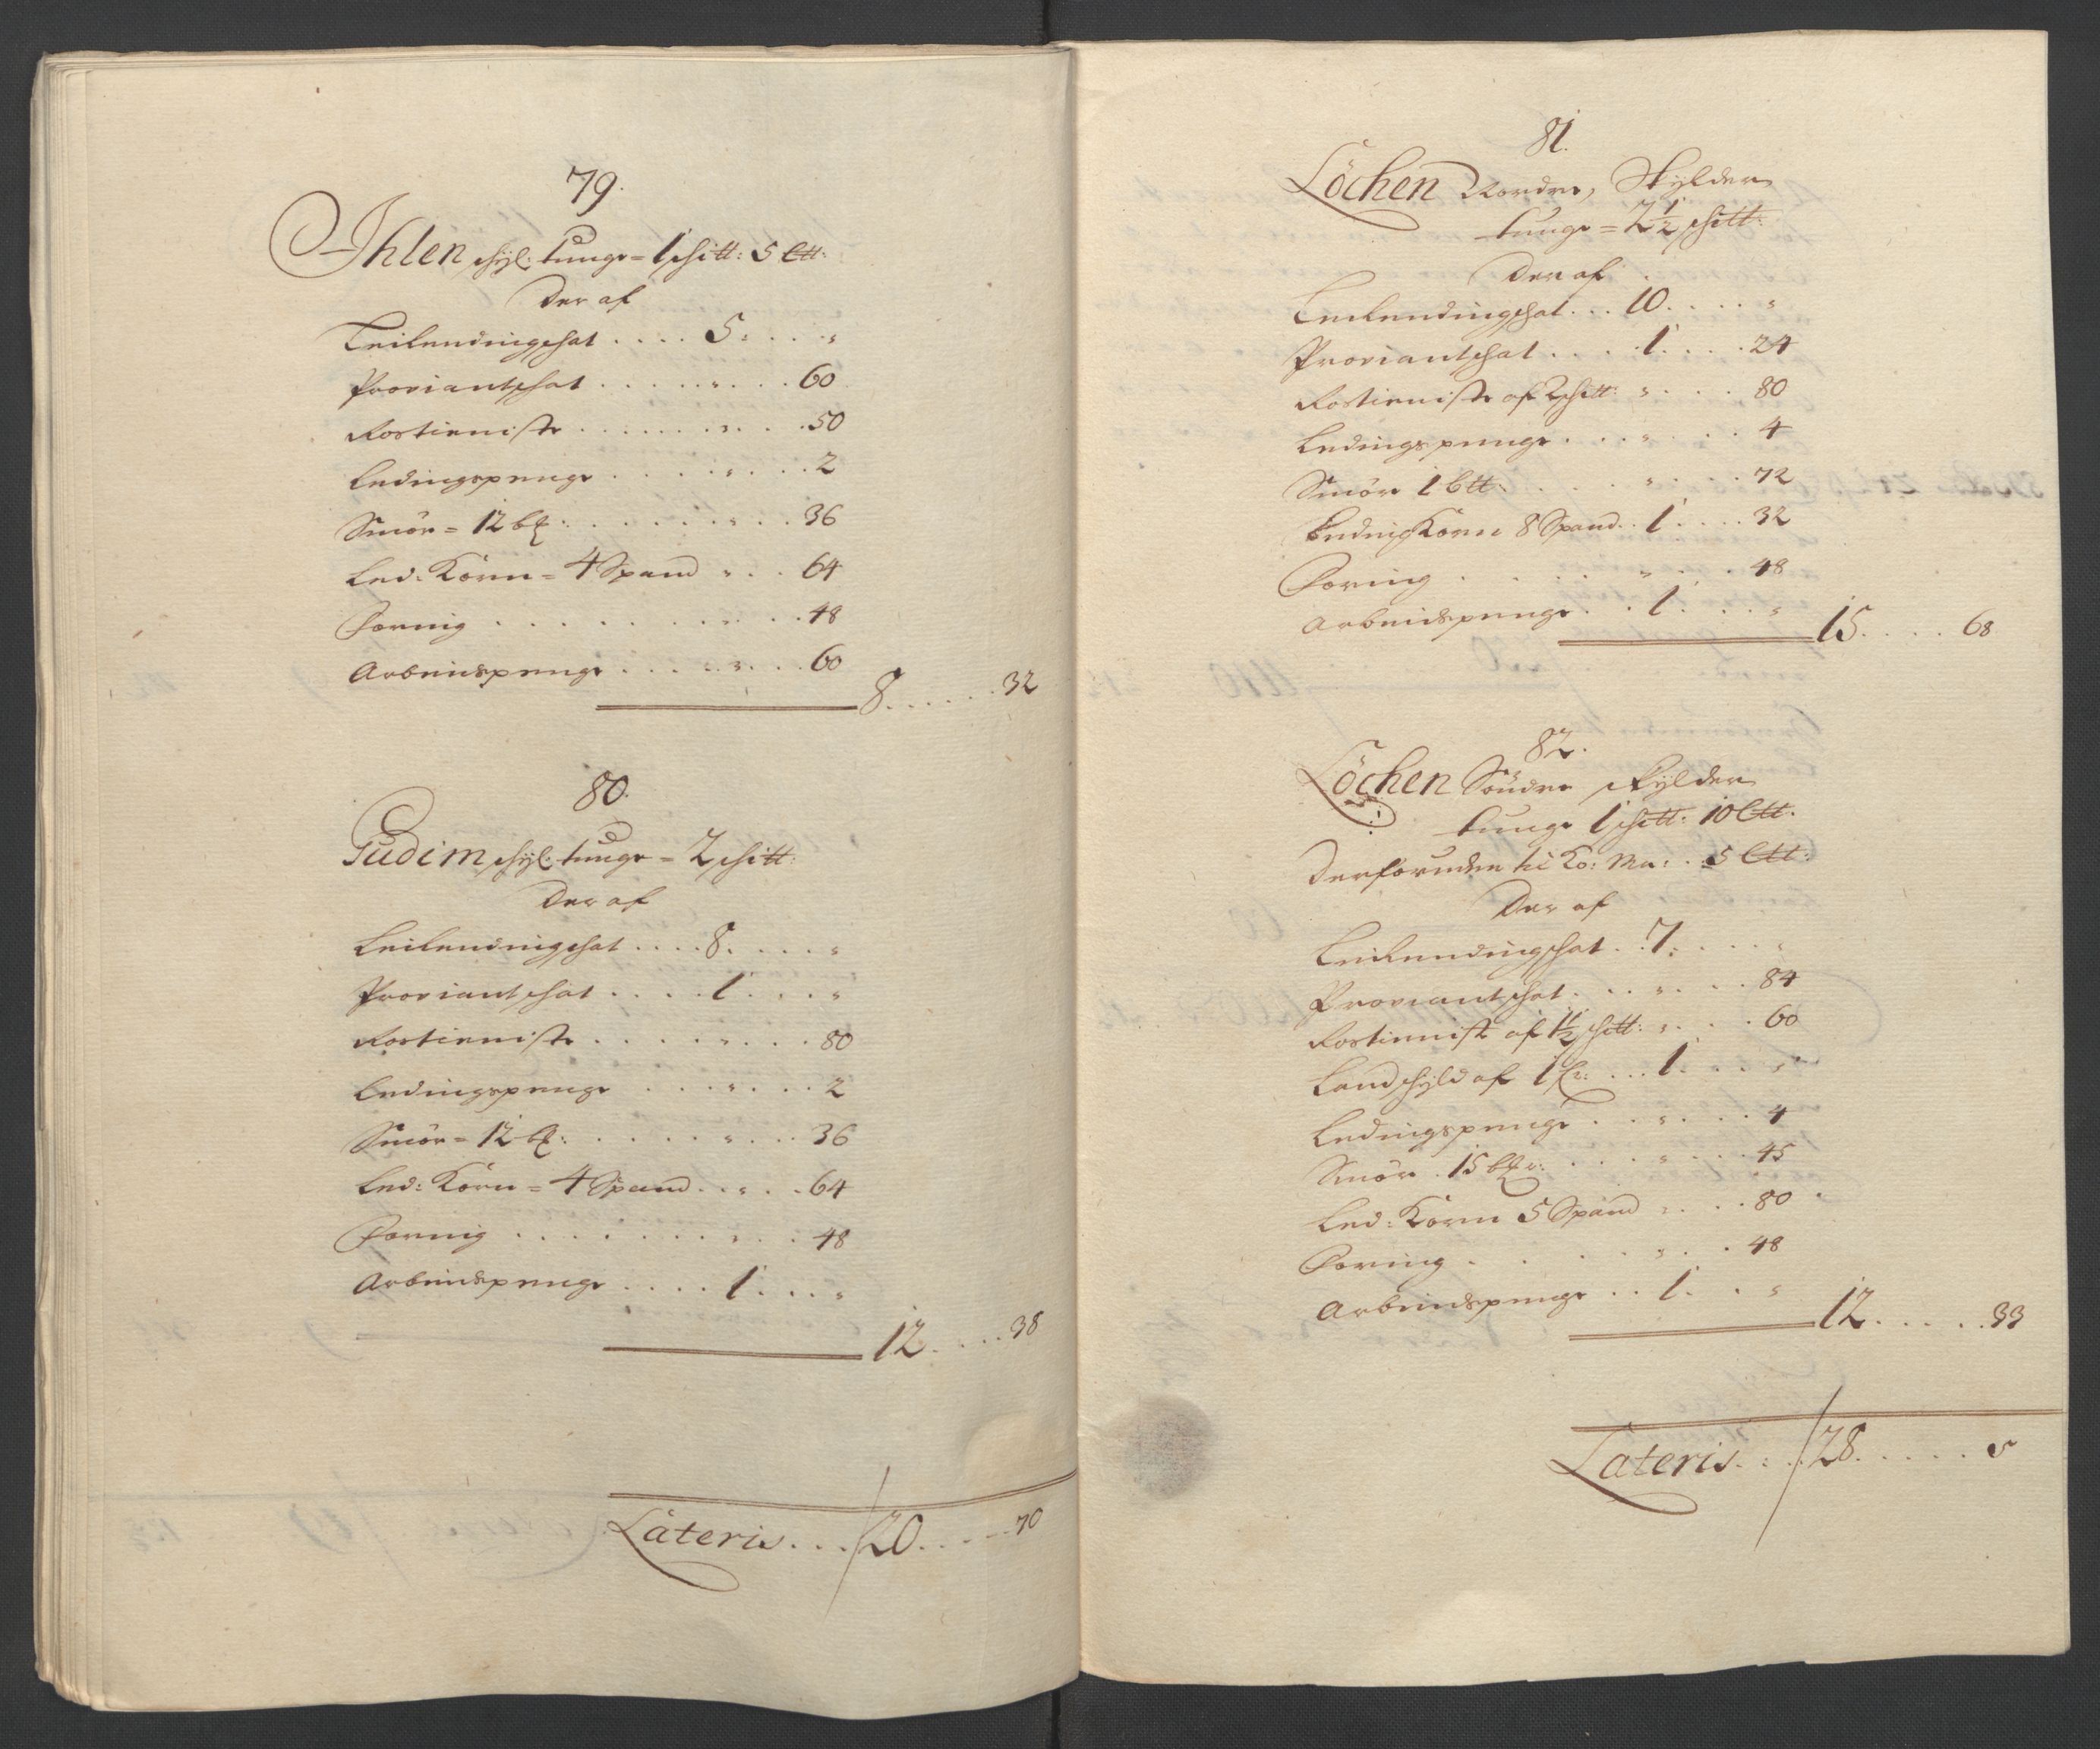 79.
Ihlen schyl: tunge = 1 schitt: 5 Ltt:
Der af
Leilendingschat . . . . 5 . . . . "
Proviantschat . . . . . " . . . 60
Rostienniste . . . . . . " . . . 50
Ledingspenge . . . . " . . . 2
Smör = 12 bꝑ: . . . . . . " . . 36
Led: Korn = 4 Spand " . . 64
Foering . . . . . . . . " . . 48
Arbeidspenge . . . . . " . . . 60
8 . . . . . . 32
80.
Gudim schyl: tunge = 2 schitt:
Der af
Leilendingschat . . . . 8 . . . . "
Proviantschat . . . . 1 . . . "
Rostienniste . . . . . " . . . 80
Ledingspenge . . . " . . . 2
Smör = 12 bꝑ: . . . . . " . . . 36
Led: Korn = 4 Spand . . " . . 64
Foering . . . . . . . . " . . 48
Arbeidspenge . . . . 1 . . . "
12 . . . . 38
Lateris . . . / 20 . . . . . 70
81.
Löchen Nordre, Skylder
tunge = 2½ schitt:
Der af
Leilendingschat . . . 10 . . . . "
Proviantschat . . . . 1 . . . . 24
Rostienniste af 2 schitt: " . . . 80
Ledingspenge . . . " . . . 4
Smör 1 btt: . . . . " . . . 72
Leding Korn 8 Spand . . 1 . . . . 32
Foring . . . . . " . . . 48
Arbeidspenge . . 1 . . . "
15 . . . . 68
82.
Löchen Söndre skylder
tunge 1 schitt: 10 Ltt:
Derforuden til Ko: Ma: . . 5 Ltt:
Der af
Leilendingschat . . 7 . . . . "
Proviantschat . . . " . . . 84
Rostienniste af 1½ schitt: " . . . 60
Landschyld af 1 . . . 1 . . . "
Ledingspenge . . . " . . . 4
Smör . 15 bꝑr: . . . . " . . . 45
Led: Korn 5 Spand " . . . 80
Foring . . . . . " . . . 48
Arbeidspenge . . 1 . . "
12 . . . . . 33
Lateris . . . / 28 . . . . . 5